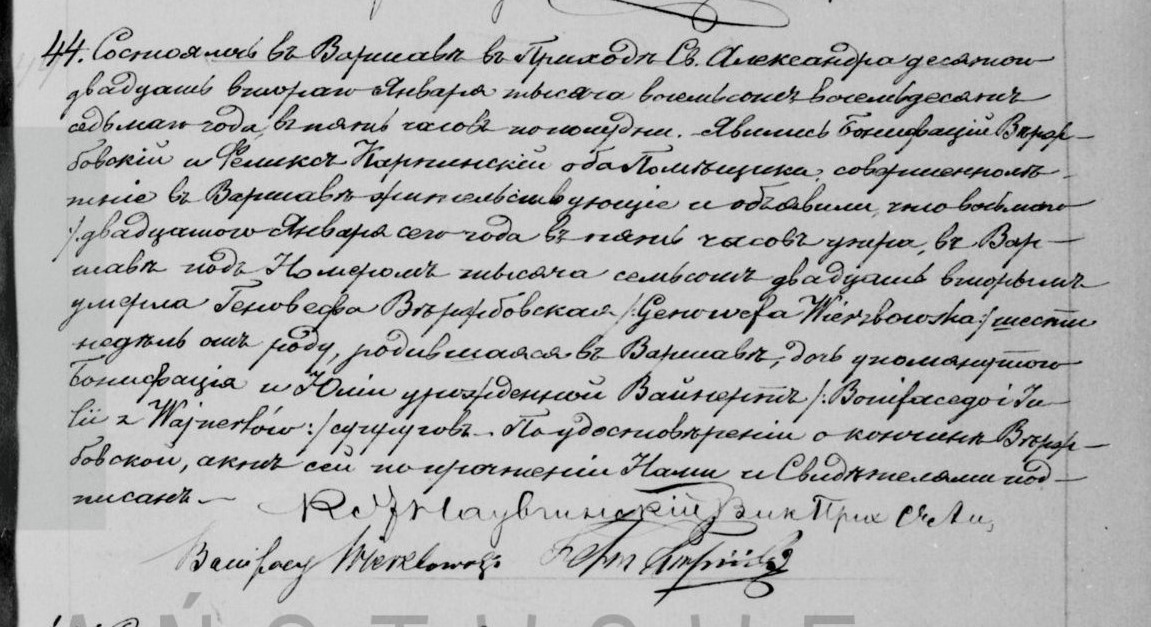 44. Состоялось въ Варшавѣ въ Приходѣ Св. Александра десятаго
двадцать втораго Января тысяча восемьсотъ восемьдесятъ
седьмаго года, въ пять часовъ пополудни. Явились Бонифацій Вѣрж-
бовскій и Феликсъ Карпинскій оба Помѣщики, совершеннолѣ-
тніе въ Варшавѣ жительствующіе и объявили, что восьмаго
/двадцатаго Января сего года въ пять часовъ утра, въ Вар-
шавѣ подъ Номеромъ тысяча семьсотъ двадцать вторымъ
умерла Геновефа Вѣржбовская /:Genowefa Wierzbowska:/ шести
недѣль отъ роду, родившаяся въ Варшавѣ, дочь упомянутого
Бонифація и Юліи урожденной Вайнертъ /:Bonifacego i Ju-
lii z Wajnertów:/ супруговъ. По удостовѣреніи о кончинѣ Вѣрж-
бовской, актъ сей по прочтеніи Нами и Свидѣтелями под-
писанъ.
Вик Прих
Bonifacy Wierzbowski